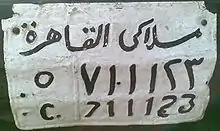 ملاكى القاهرة
٥ ٧١١١٢٣
C. 711123